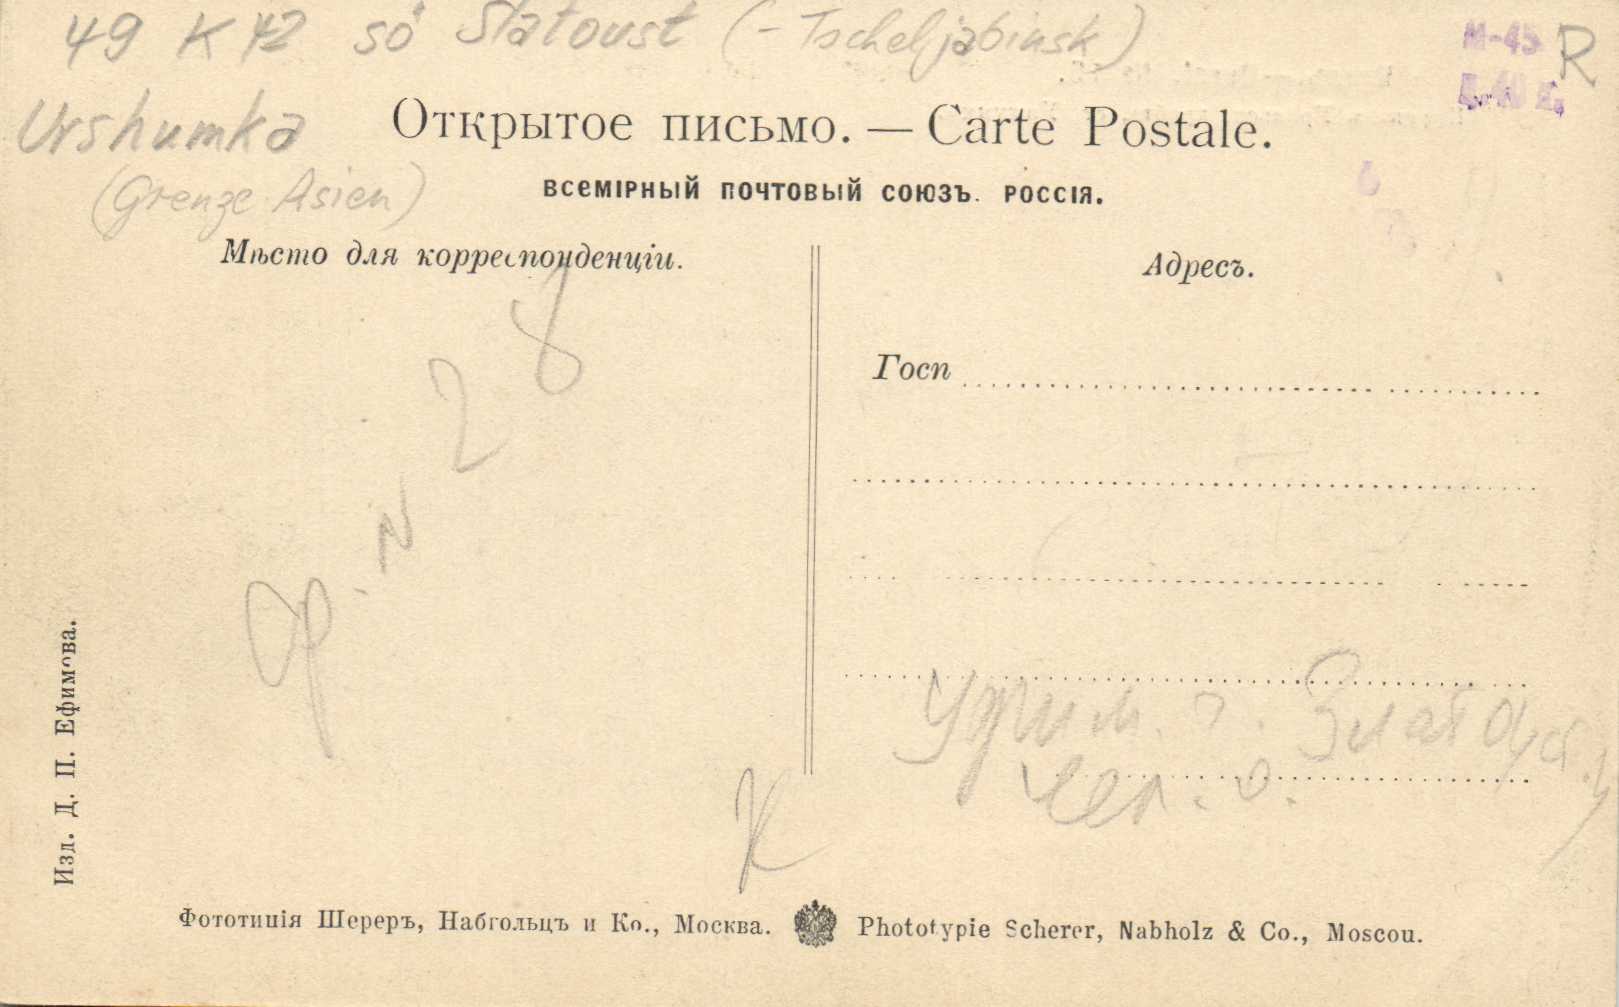 49 K 42 sö Slatoust (- Tscheljabinsk)
M-45 R
Urshumka
(Grenze Asien)
Открытое письмо. — Carte Postale.
ВСЕМІРНЫЙ ПОЧТОВЫЙ СОЮЗЪ. РОССІЯ.
Мѣсто для корреспонденціи.
Адресъ.
Госп
N 28
Златоуст.
К
Изд. Д. П. Ефимова.
Фототипія Шереръ, Набгольцъ и Ко., Москва.
Phototypie Scherer, Nabholz & Co., Moscou.